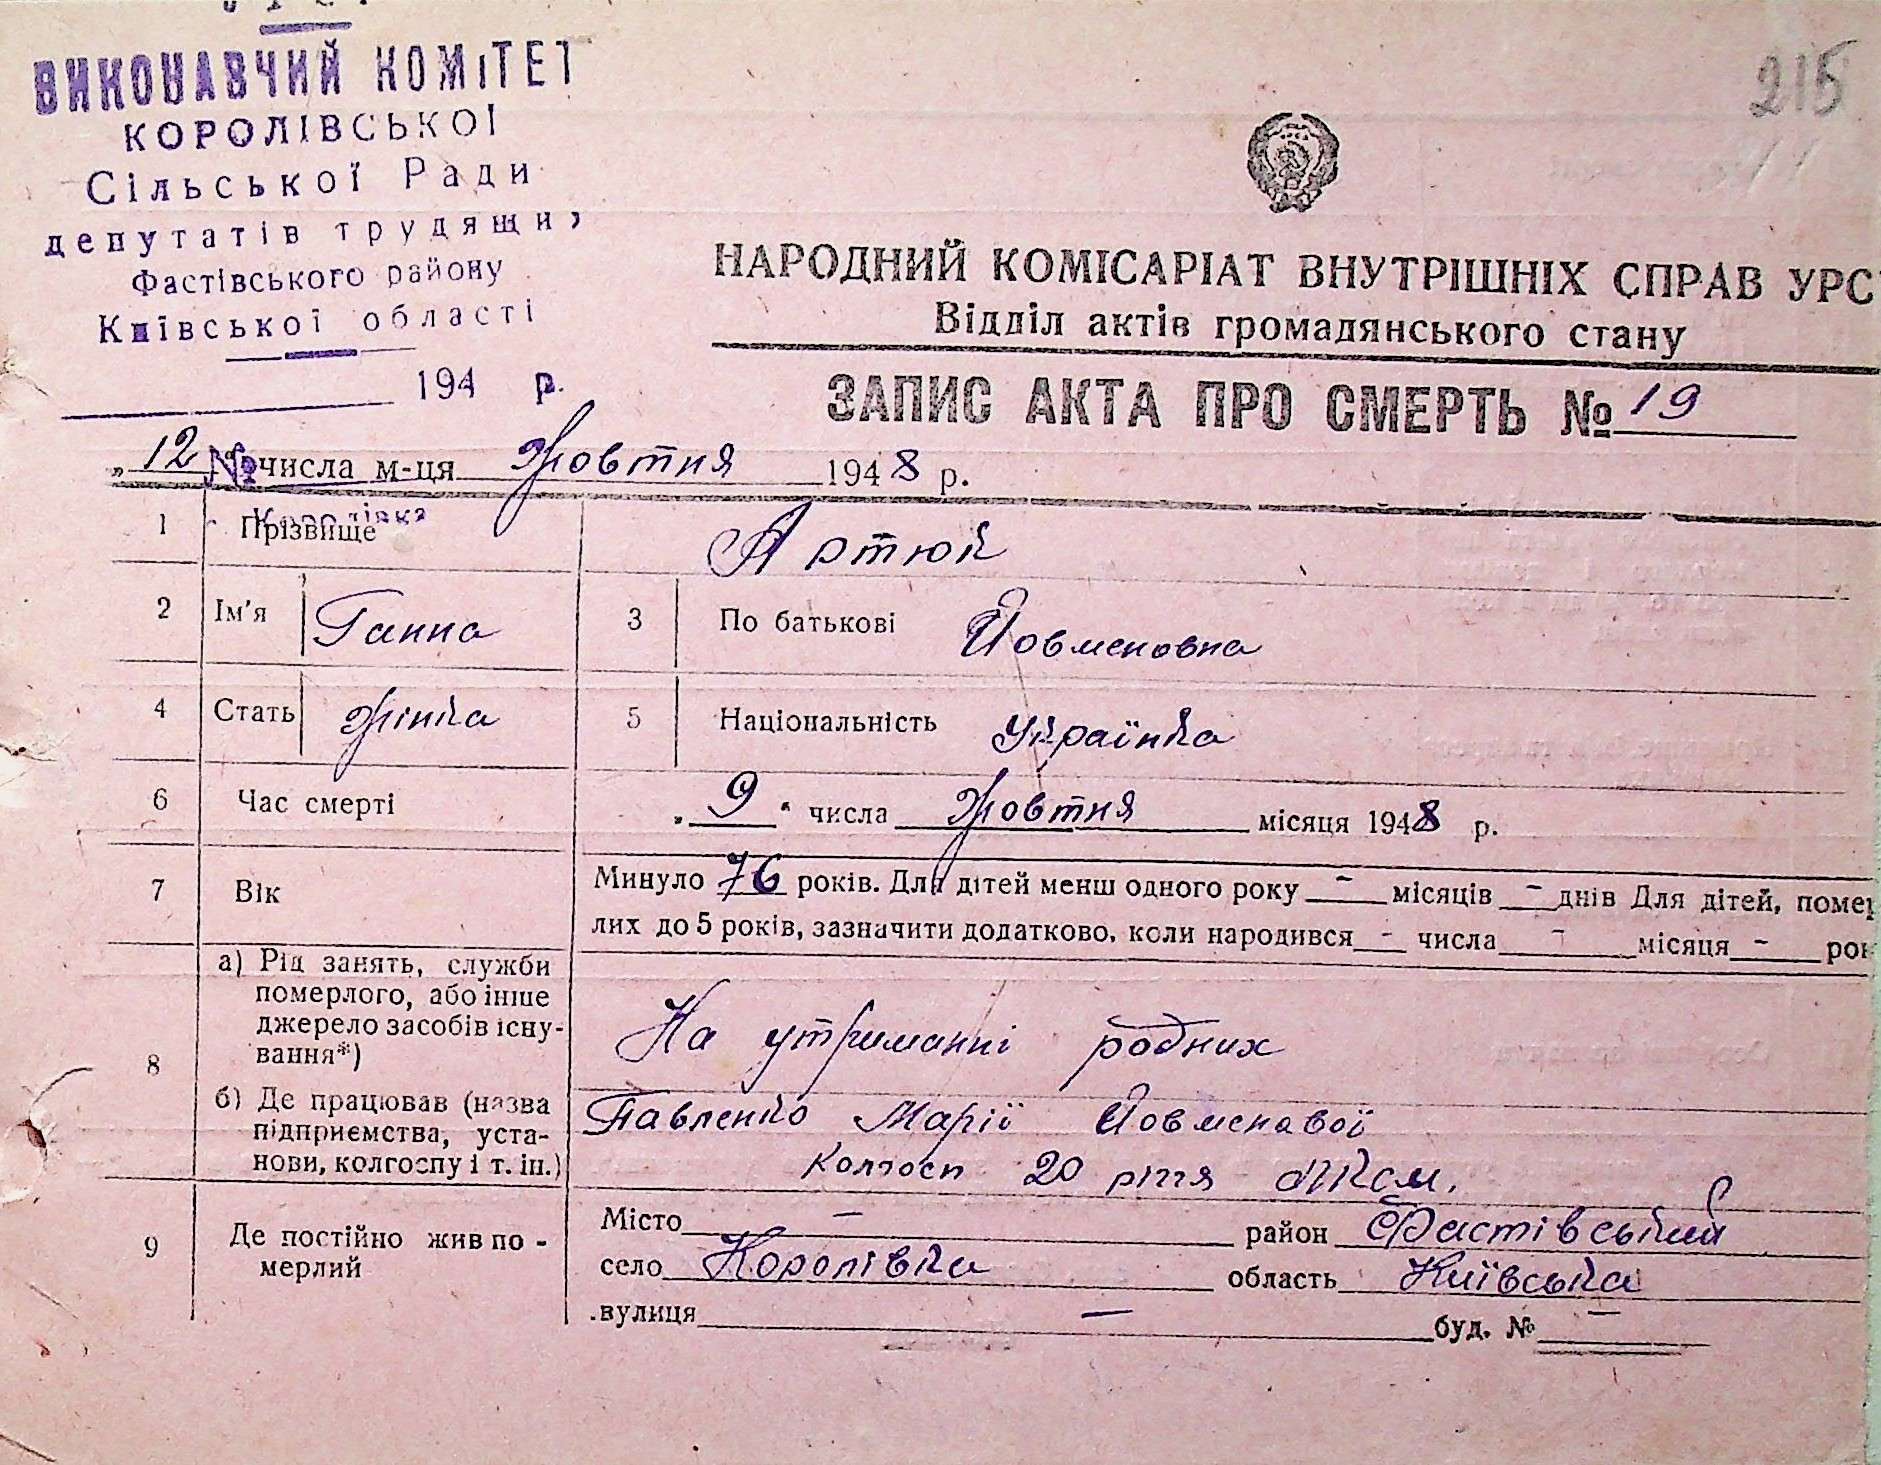 ВИКОНАВЧИЙ КОМІТЕТ
КОРОЛІВСЬКОЇ
Сільської Ради
депутатів трудящи,
Фастівського району
Київської області
194 р.
№
Королівка
215
НАРОДНИЙ КОМІСАРІАТ ВНУТРІШНІХ СПРАВ УРС
Відділ актів громадянського стану
ЗАПИС АКТА ПРО СМЕРТЬ № 19
„12 числа м-ця Жовтня 1948 р.
1 Прізвище Артюк
2 Ім'я Ганна 3 По батькові Йовменовна
4 Стать жінка 5 Національність Українка
6 Час смерті „9" числа Жовтня місяця 1948 р.
7 Вік Минуло 76 років. Для дітей менш одного року - місяців - днів Для дітей, помер
лих до 5 років, зазначити додатково, коли народився - числа - місяця - рок
8 а) Рід занять, служби померлого, або інше джерело засобів існу-вання*) На утриманні родних
б) Де працював (назва підприємства, уста-нови, колгоспу і т. ін.) Павленко Марії Йовменавої
Колгосп 20 річчя ЛКСМ.
9 Де постійно жив по-мерлий Місто — район Фастівський
село Королівка область Київська
вулиця — буд. № —